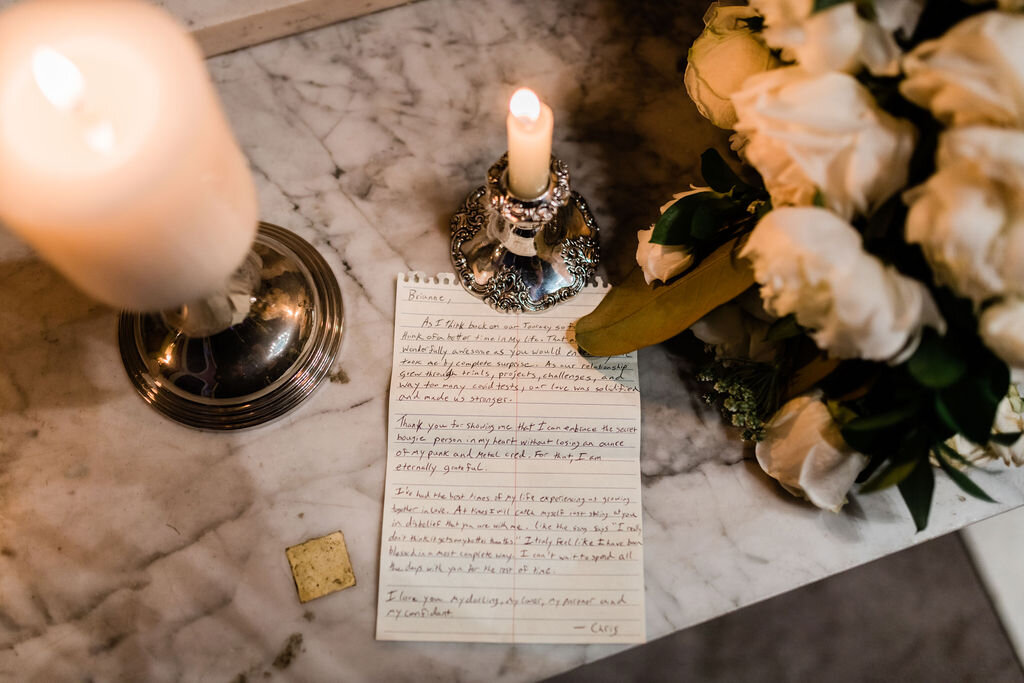 Brianne,
As I think back on our Journey so f
think of a better time in my life. That
wonderfully awesome as you would en
took me by complete surprise. As our relationship
grew through trials, projects, challenges, and
way too many covid tests, our love was solidified
and made us stronger.
Thank you for showing me that I can embrace the secret
bougie person in my heart without losing an ounce
of my punk and Metal cred. For that, I am
eternally grateful.
I've had the best times of my life experiencing us growing
together in love. At times I will catch myself just staring at you
in disbelief that you are with me. Like the song says "I really
don't think it gets any better than this." I truly feel like I have been
blessed in a most complete way. I can't wait to spend all
the days with you for the rest of time.
I love you my darling, my lover, my partner and
my confidant.
— Chris